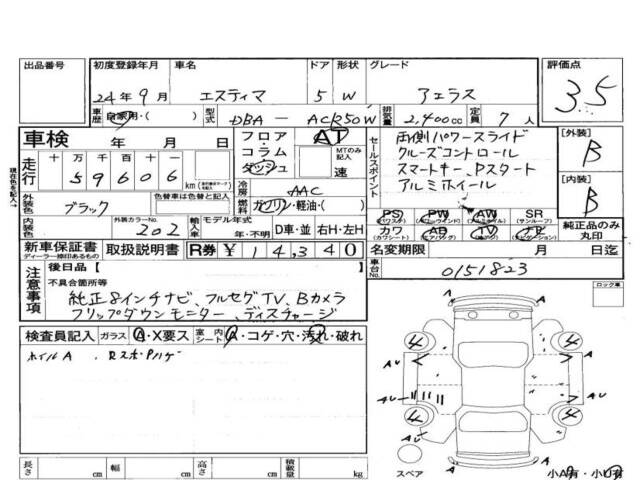 出品番号
初度登録年月 車名 ドア 形状 グレード 評価点
24年9月 エスティマ 5 W アエラス 3.5
車歴 自家用・( ) 型式 DBA－ACR50W 排気量 2,400cc 定員 7人
車検 年 月 日
フロア コラム ダッシュ AT MTのみ記入 速
セールスポイント
両側パワースライド
クルーズコントロール
スマートキー、Pスタート
アルミホイール
[外装] B
[内装] B
走行 十万千百十一
59606 km
冷房 AAC
外装色 ブラック 色替車は色替と記入
燃料 ガソリン・軽油・( )
PS PW AW SR 純正品のみ丸印
(パワステ) (パワーウインド) (アルミホイル) (サンルーフ)
カワ AB TV ナビ
(カワシート) (エアバッグ) (テレビ) (ナビゲーション)
内装色 外装カラーNo. 202 輸入車 モデル年式 年・不明 D車・並 右H・左H
新車保証書 取扱説明書 R券 ¥14,340
ディーラー捺印あるもの
名変期限 月 日迄
車台No. 0151823
注意事項
後日品[ ]
不具合箇所等
純正8インチナビ、フルセグTV、Bカメラ
フリップダウンモニター、ディスチャージ
ロック車
検査員記入 ガラス A・X要ス 室内シート A・コゲ・穴・汚れ・破れ
ホイルA、Rスポ・Pハゲ
A A
4 4
A A
AU AU
4 4
A A
スペア
小A有・小U有
長さ cm 幅 cm 高さ cm 積載量 kg